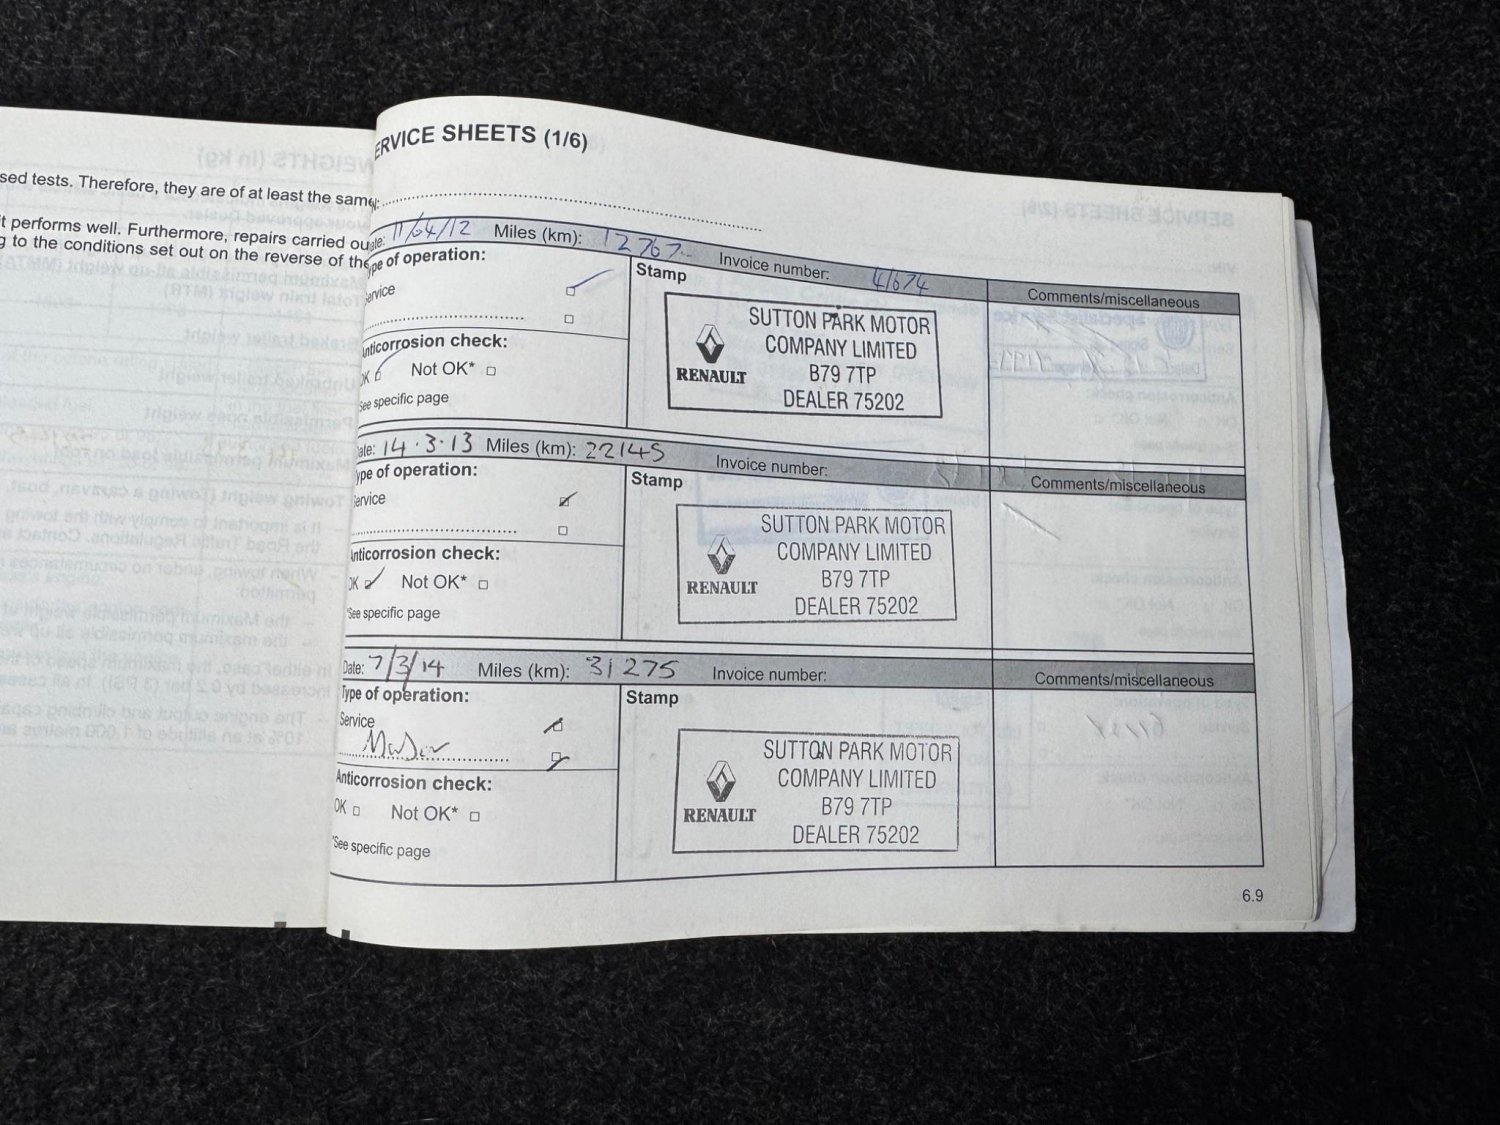 sed tests. Therefore, they are of at least the same
it performs well. Furthermore, repairs carried ou
g to the conditions set out on the reverse of the
ERVICE SHEETS (1/6)
ate: 11/04/12 Miles (km): 12767 Invoice number: 41674
ype of operation:
Stamp
Comments/miscellaneous
ervice
nticorrosion check:
OK Not OK*
See specific page
RENAULT
SUTTON PARK MOTOR
COMPANY LIMITED
B79 7TP
DEALER 75202
ate: 14.3.13 Miles (km): 22145 Invoice number:
ype of operation:
Stamp
Comments/miscellaneous
ervice
Anticorrosion check:
OK Not OK*
*See specific page
RENAULT
SUTTON PARK MOTOR
COMPANY LIMITED
B79 7TP
DEALER 75202
Date: 7/3/14 Miles (km): 31275 Invoice number:
Type of operation:
Stamp
Comments/miscellaneous
Service
Anticorrosion check:
OK Not OK*
*See specific page
RENAULT
SUTTON PARK MOTOR
COMPANY LIMITED
B79 7TP
DEALER 75202
6.9